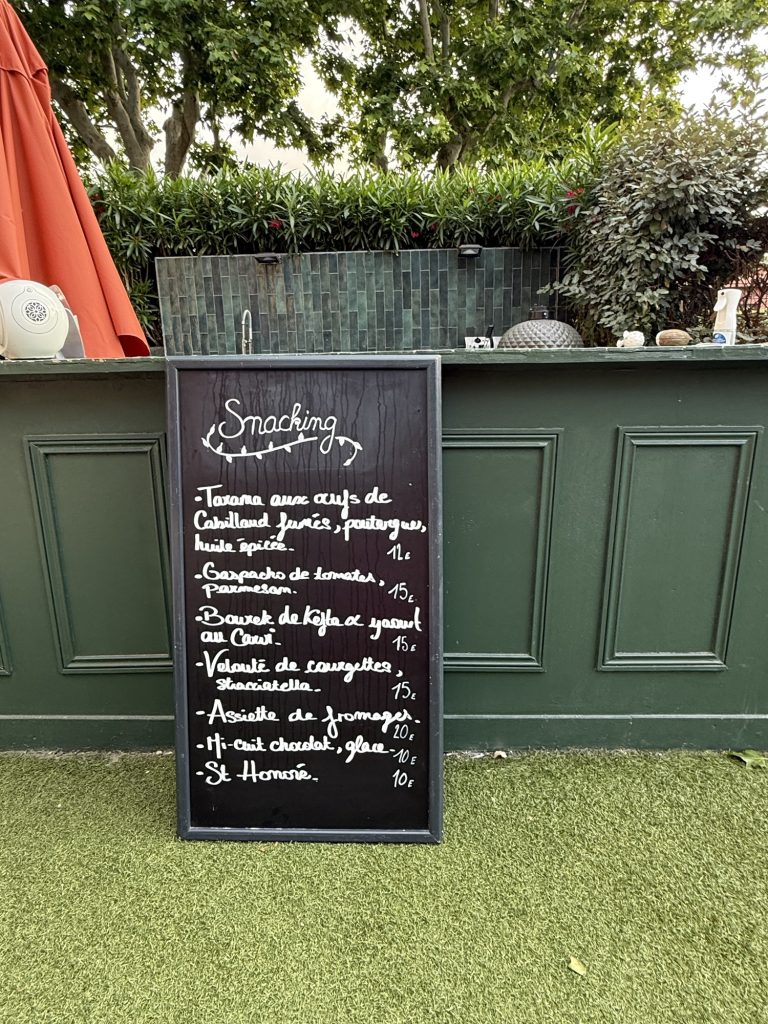 Snacking
-Tarama aux œufs de
Cabillaud fumés, poutargue,
huile épicée.
12€
-Gaspacho de tomates,
parmesan.
15€
-Bourek de Kefta & yaourt
au Carvi.
15€
-Velouté de courgettes,
stracciatella.
15€
-Assiette de fromages.
20€
-Mi-cuit chocolat, glace-10€
-St Honoré.
10€